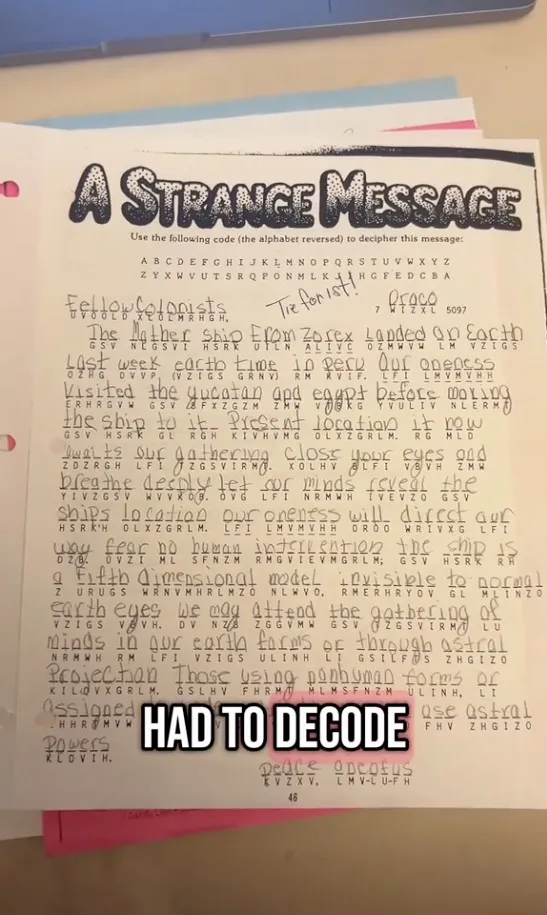 A STRANGE MESSAGE
Use the following code (the alphabet reversed) to decipher this message:
A B C D E F G H I J K L M N O P Q R S T U V W X Y Z
Z Y X W V U T S R Q P O N M L K J I H G F E D C B A
Tie for 1st!
Fellow Colonists Draco
UVOOLD XLOLMRHGH, 7 WIZXL 5097
The Mother ship From Zorex Landed on Earth
GSV NLGSVI HSRK UILN ALIVC OZMWVW LM VZIGS
Last week earth time in peru Our oneness
OZHG DVVP, (VZIGS GRNV) RM KVIF. LFI LMVMVHH
Visited the yucatan and egypt before moving
ERHRGVW GSV BFXZGZM ZMW VTBKG YVULIV NLERMT
the ship to it Present location it now
GSV HSRK GL RGH KIVHVMG OLXZGRLM. RG MLD
awaits our gathering close your eyes and
ZDZRGH LFI TZGSVIRMT. XOLHV BLFI VBVH ZMW
breathe deeply let our minds reveal the
YIVZGSV WVVKOB. OVG LFI NRMWH IVEVZO GSV
ships location our oneness will direct our
HSRK'H OLXZGRLM. LFI LMVMVHH DROO WRIVXG LFI
way fear no human intervention the ship is
DZB. UVZI ML SFNZM RMGVIEVMGRLM; GSV HSRK RH
a fifth dimensional model invisible to normal
Z URUGS WRNVMHRLMZO NLWVO, RMERHRYOV GL MLINZO
earth eyes we may attend the gathering of
VZIGS VBVH. DV NZB ZGGVMW GSV TZGSVIRMT LU
minds in our earth forms or through astral
NRMWH RM LFI VZIGS ULINH LI GSILFTS ZHGIZO
Projection Those using panhuman forms or
KILQVXGRLM. GSLHV FHRMT MLMSFNZM ULINH, LI
assigned use astral
FHV ZHGIZO
HAD TO DECODE
powers
KLDVIH.
peace oneofus
KVZXV, LMV-LU-FH
46